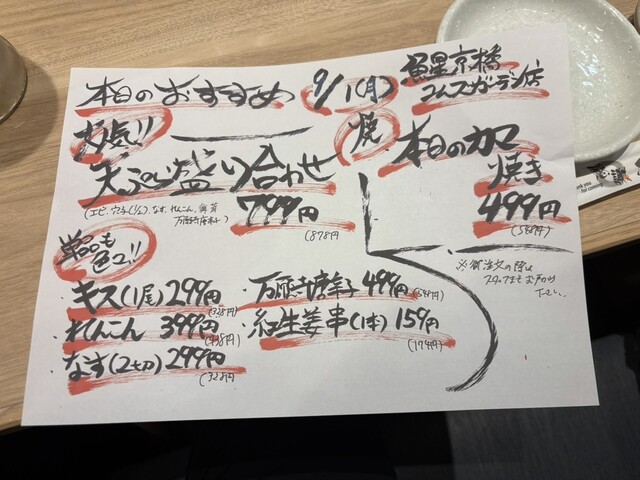 本日のおすすめ 9/1(月)
魚星京橋
コムズガーデン店
人気!!
天ぷら盛り合わせ
(エビ、穴子(1/2)、なす、れんこん、舞茸
万願寺唐辛子)
799円
(878円
単品も
色々!!
・キス(1尾) 299円
(328円
・れんこん 399円
(438円
・なす(2切) 299円
(328円
・万願寺唐辛子 499円
(548円
・紅生姜串(1本) 159円
(174円)
焼
本日のカマ
焼き
499円
(548円)
※御注文の際は
スタッフまでお声かけ
下さい。